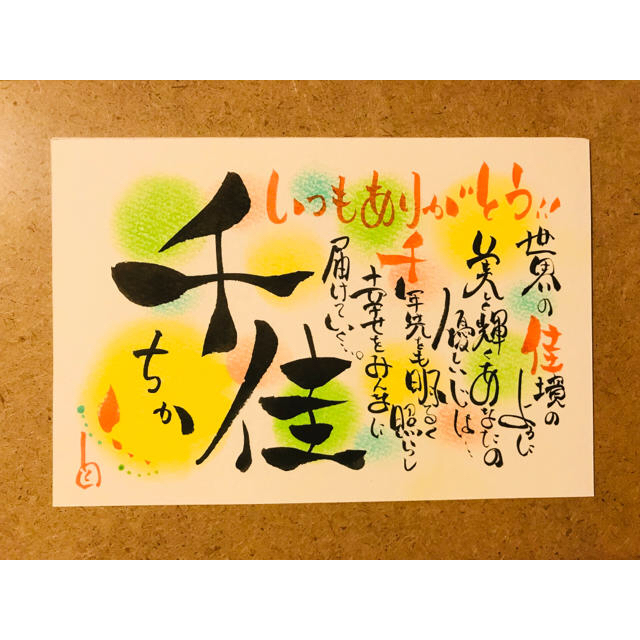 いつもありがとう!!
世界の佳境の
ように
美しく輝くあなたの
優しい心は…
千年先をも明るく
照らし
幸せをみんなに
届けていく…。
千佳
ちか